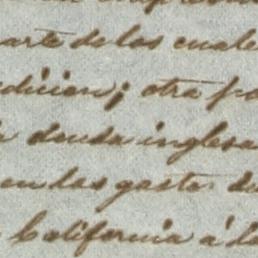 arte de los cuale
dicion; otra pa
deuda inglesa
en los gastos de
California á la